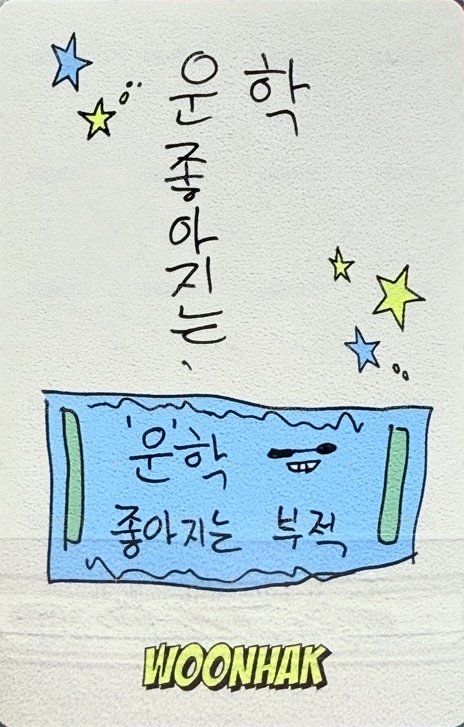 운학
좋아지는
'운'학
좋아지는 부적
WOONHAK